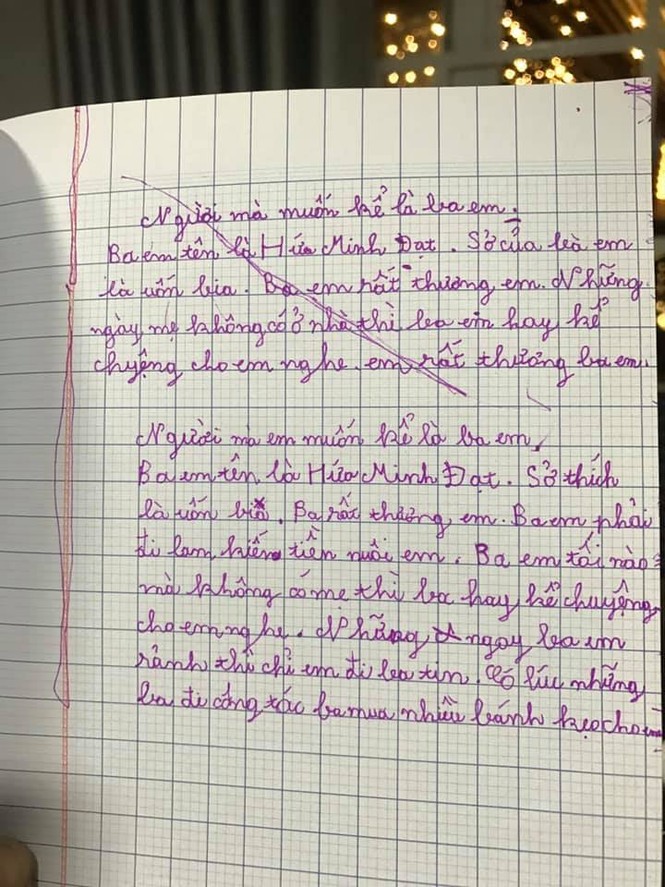 Người mà muốn kể là ba em.
Ba em tên là Hứa Minh Đạt. Sở của là em
là uốn bia. Ba em rất thương em. Những
ngày mẹ không có ở nhà thì ba em hay kể
chuyệng cho em nghe. em rất thương ba em.
Người mà em muốn kể là ba em.
Ba em tên là Hứa Minh Đạt. Sở thích
là uốn bia. Ba rất thương em. Ba em phải
đi lam kiếm tiền nuôi em. Ba em tối nào
mà không có mẹ thì ba hay kể chuyệng
cho em nghe. Những ngay ba em
rảnh thì chỉ em đi
Có lúc những
ba đi công tác ba mua nhiều bánh kẹo cho em